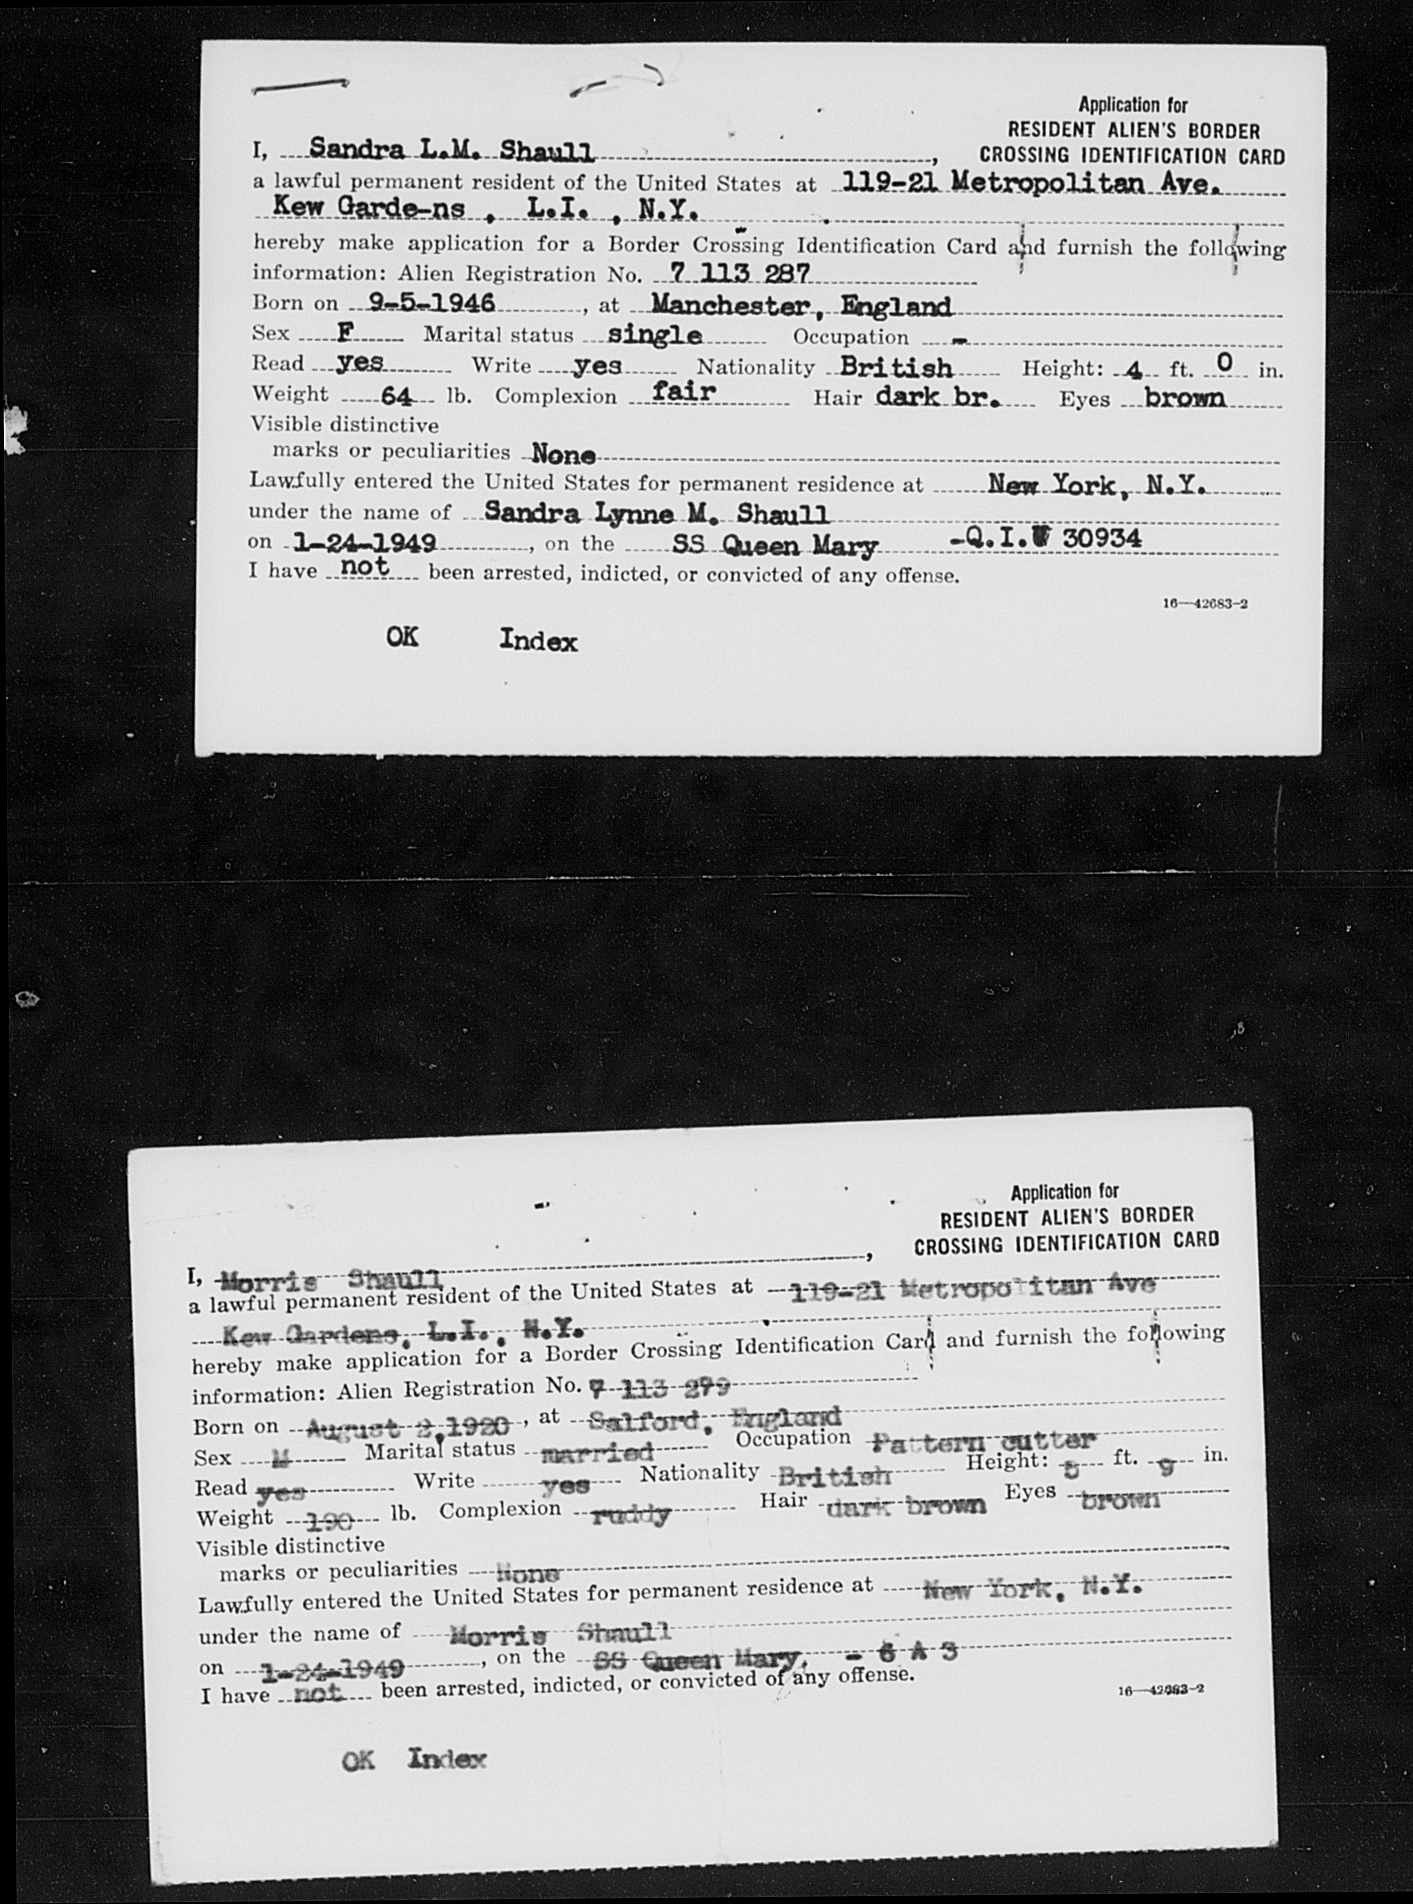 Application for
RESIDENT ALIEN'S BORDER
CROSSING IDENTIFICATION CARD
I, Sandra L.M. Shaull,
a lawful permanent resident of the United States at 119-21 Metropolitan Ave.
Kew Garde-ns , L.I. , N.Y.
hereby make application for a Border Crossing Identification Card and furnish the following
information: Alien Registration No. 7 113 287
Born on 9-5-1946, at Manchester, England
Sex F Marital status single Occupation -
Read yes Write yes Nationality British Height: 4 ft. 0 in.
Weight 64 lb. Complexion fair Hair dark br. Eyes brown
Visible distinctive
marks or peculiarities None
Lawfully entered the United States for permanent residence at New York, N.Y.
under the name of Sandra Lynne M. Shaull
on 1-24-1949, on the SS Queen Mary -Q.I.W 30934
I have not been arrested, indicted, or convicted of any offense.
16—42683-2
OK Index
Application for
RESIDENT ALIEN'S BORDER
CROSSING IDENTIFICATION CARD
I, Morris Shaull,
a lawful permanent resident of the United States at 119-21 Metropolitan Ave
Kew Gardens, L.I., N.Y.
hereby make application for a Border Crossing Identification Card and furnish the following
information: Alien Registration No. 7 113 279
Born on August 2,1920, at Salford, England
Sex M Marital status married Occupation Pattern cutter
Read yes Write yes Nationality British Height: 5 ft. 9 in.
Weight 190 lb. Complexion ruddy Hair dark brown Eyes brown
Visible distinctive
marks or peculiarities None
Lawfully entered the United States for permanent residence at New York, N.Y.
under the name of Morris Shaull
on 1-24-1949, on the SS Queen Mary, - 6 A 3
I have not been arrested, indicted, or convicted of any offense.
16—42683-2
OK Index